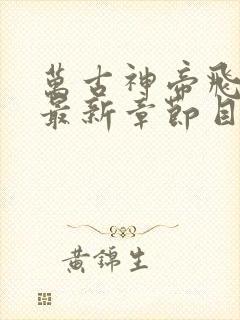 萬古神帝飛
最新章節目
黃錦生